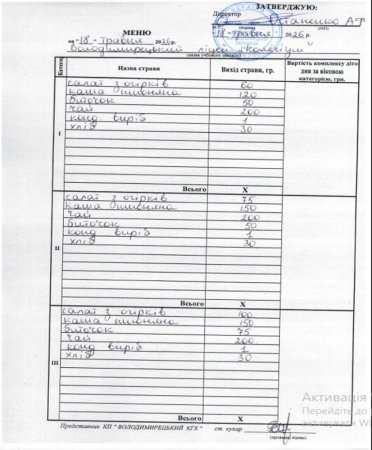 ЗАТВЕРДЖУЮ:
Директор
МЕНЮ
"18" травня 2026р.
на "18" травня 2026р.
Володимирецький ліцей "Колегіум"
(назва учбового закладу)
Комплекс Назва страви Вихід страви, гр. Вартість комплексу діто дня за віковою категорією, грн.
I
салат з огірків 60
каша пшоняна 120
биточок 50
чай 200
конд. виріб 1
хліб 30
Всього X
II
салат з огірків 75
каша пшоняна 150
чай 200
биточок 50
конд виріб 1
хліб 30
Всього X
III
салат з огірків 100
каша пшоняна 150
биточок 75
чай 200
конд виріб 1
хліб 30
Всього X
Представник КП "ВОЛОДИМИРЕЦЬКИЙ КГХ" ст. кухар
(прізвище, підпис)
Активація
Перейдіть до
активувати Wi